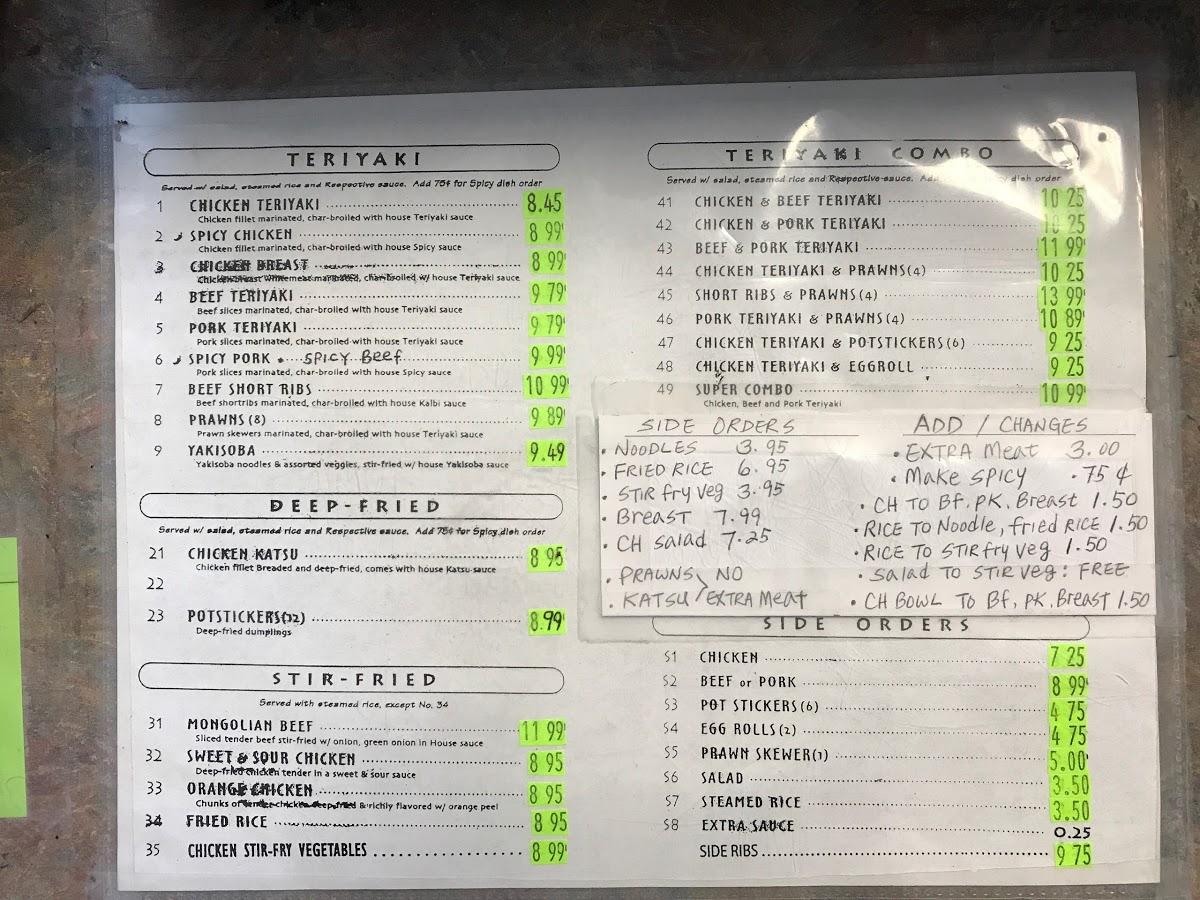 TERIYAKI
Served w/ salad, steamed rice and Respective sauce. Add 75¢ for Spicy dish order
1 CHICKEN TERIYAKI 8.45
Chicken fillet marinated, char-broiled with house Teriyaki sauce
2 SPICY CHICKEN 8 99
Chicken fillet marinated, char-broiled with house Spicy sauce
3 CHICKEN BREAST 8 99
Chicken breast marinated, char-broiled w/ house Teriyaki sauce
4 BEEF TERIYAKI 9 79
Beef slices marinated, char-broiled with house Teriyaki sauce
5 PORK TERIYAKI 9 79
Pork slices marinated, char-broiled with house Teriyaki sauce
6 SPICY PORK • SPICY Beef 9 99
Pork slices marinated, char-broiled with house Spicy sauce
7 BEEF SHORT RIBS 10 99
Beef shortribs marinated, char-broiled with house Kalbi sauce
8 PRAWNS (8) 9 89
Prawn skewers marinated, char-broiled with house Teriyaki sauce
9 YAKISOBA 9.49
Yakisoba noodles & assorted veggies, stir-fried w/ house Yakisoba sauce
DEEP-FRIED
Served w/ salad, steamed rice and Respective sauce. Add 75¢ for Spicy dish order
21 CHICKEN KATSU 8 95
Chicken fillet Breaded and deep-fried, comes with house Katsu sauce
22
23 POTSTICKERS(12) 8.99
Deep-fried dumplings
STIR-FRIED
Served with steamed rice, except No. 34
31 MONGOLIAN BEEF 11 99
Sliced tender beef stir-fried w/ onion, green onion in House sauce
32 SWEET & SOUR CHICKEN 8 95
Deep-fried chicken tender in a sweet & sour sauce
33 ORANGE CHICKEN 8 95
Chunks of tender chicken deep-fried & richly flavored w/ orange peel
34 FRIED RICE 8 95
35 CHICKEN STIR-FRY VEGETABLES 8 99
TERIYAKI COMBO
Served w/ salad, steamed rice and Respective sauce. Spicy dish order
41 CHICKEN & BEEF TERIYAKI 10 25
42 CHICKEN & PORK TERIYAKI 10 25
43 BEEF & PORK TERIYAKI 11 99
44 CHICKEN TERIYAKI & PRAWNS(4) 10 25
45 SHORT RIBS & PRAWNS(4) 13 99
46 PORK TERIYAKI & PRAWNS(4) 10 89
47 CHICKEN TERIYAKI & POTSTICKERS(6) 9 25
48 CHICKEN TERIYAKI & EGGROLL 9 25
49 SUPER COMBO 10 99
Chicken, Beef and Pork Teriyaki
SIDE ORDERS
• NOODLES 3.95
• FRIED RICE 6.95
• STIR fry Veg 3.95
• Breast 7.99
• CH salad 7.25
• PRAWNS NO
• KATSU / EXTRA Meat
ADD / CHANGES
• EXTRA Meat 3.00
• Make SPICY .75 ¢
• CH TO Bf, PK, Breast 1.50
• RICE TO Noodle, fried RICE 1.50
• RICE TO STIR fry Veg 1.50
• Salad TO STIR Veg: FREE
• CH BOWL TO Bf, PK, Breast 1.50
SIDE ORDERS
S1 CHICKEN 7 25
S2 BEEF or PORK 8 99
S3 POT STICKERS(6) 4 75
S4 EGG ROLLS(2) 4 75
S5 PRAWN SKEWER(1) 5.00
S6 SALAD 3.50
S7 STEAMED RICE 3.50
S8 EXTRA SAUCE 0.25
SIDE RIBS 9 75